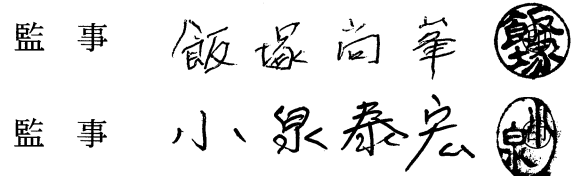 監事 飯塚尚峯 飯塚
監事 小泉泰宏 小泉